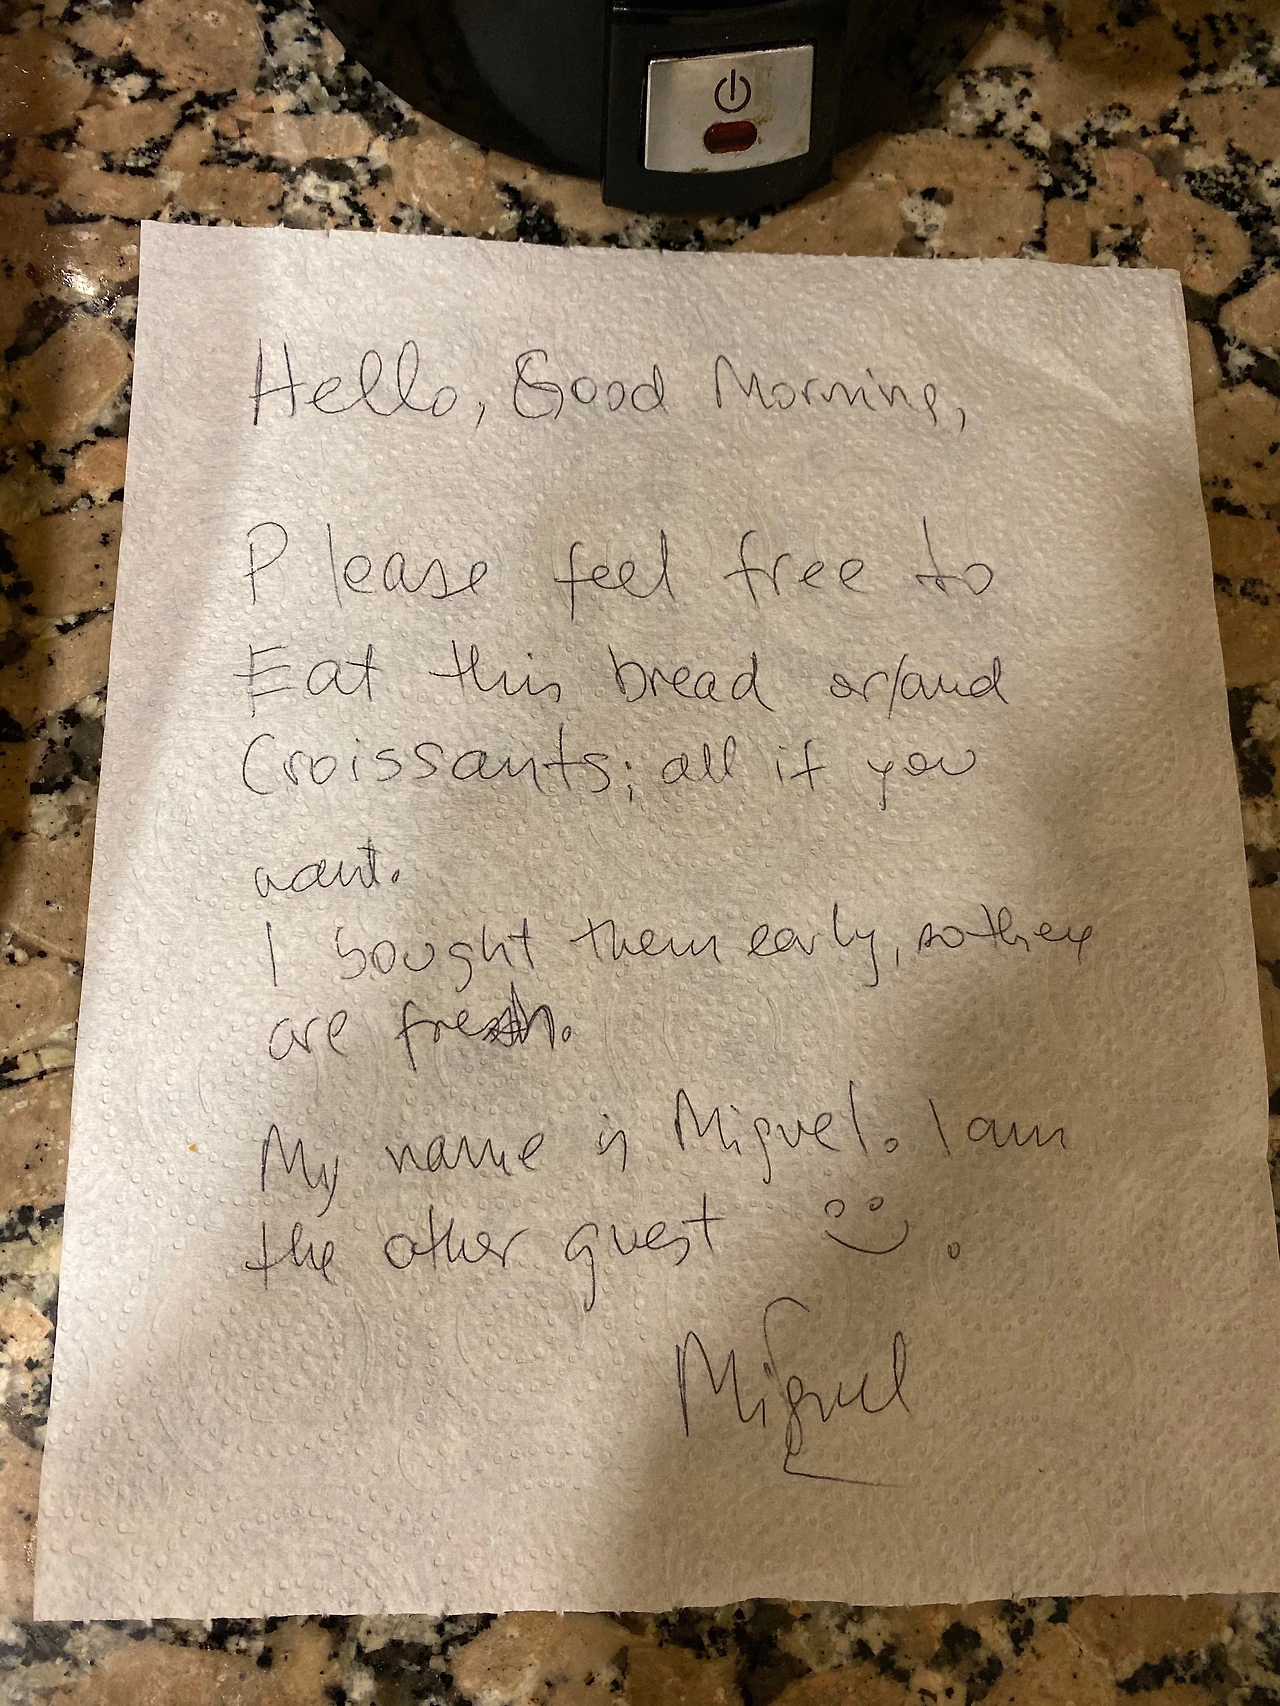 Hello, Good Morning,
Please feel free to
Eat this bread or/and
Croissants; all if you
want.
I bought them early, so they
are fresh.
My name is Miguel. I am
the other guest :).
Miguel